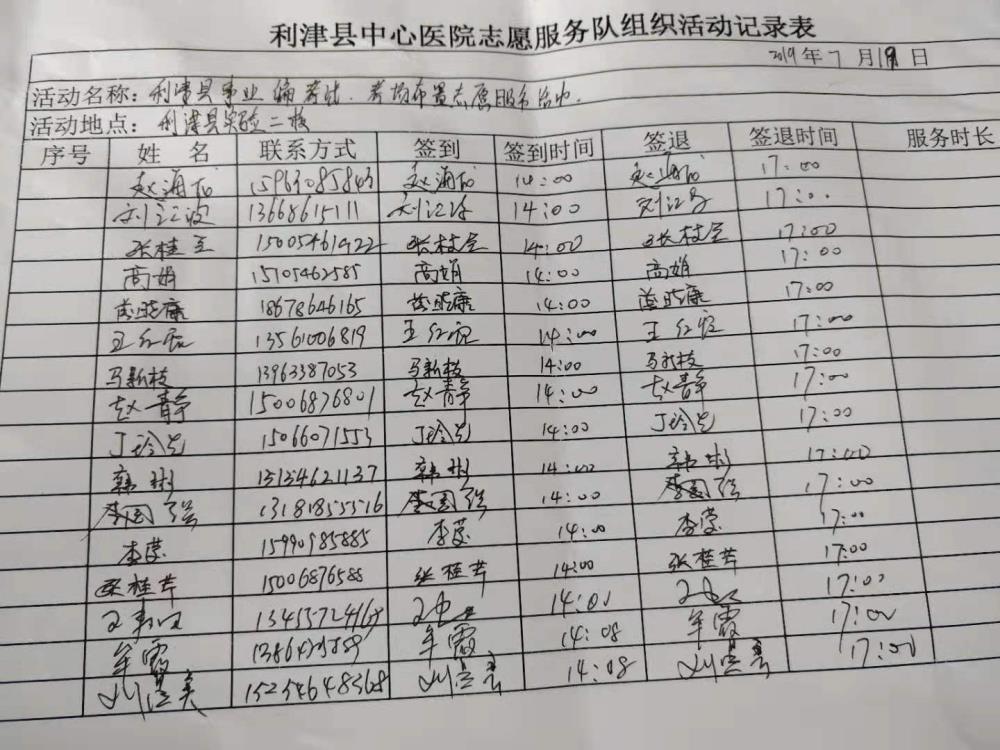 利津县中心医院志愿服务队组织活动记录表
2019年 7 月 19 日
活动名称：利津县事业编考试、考场布置志愿服务活动.
活动地点：利津县实验二校
序号 姓 名 联系方式 签到 签到时间 签退 签退时间 服务时长
赵海龙 15963085843 赵海龙 14:00 赵海龙 17:00
刘江波 13668615111 刘江波 14:00 刘江波 17:00
张桂兰 15005461922 张桂兰 14:00 张桂兰 17:00
高娟 15105462585 高娟 14:00 高娟 17:00
18678646165 14:00 17:00
王红霞 13561006819 王红霞 14:00 王红霞 17:00
马新枝 13963387053 马新枝 14:00 马新枝 17:00
赵青静 15006876801 赵青静 14:00 赵青静 17:00
丁玲芝 15066071553 丁玲芝 14:00 丁玲芝 17:00
韩彬 14:00 韩彬 17:00
李国强 13181855516 李国强 14:00 李国强 17:00
李蒙 15990985885 李蒙 14:00 李蒙 17:00
张桂芹 15006876588 张桂芹 14:00 张桂芹 17:00
14:01 17:00
牟霞 牟霞 14:08 牟霞 17:00
14:08 17:00